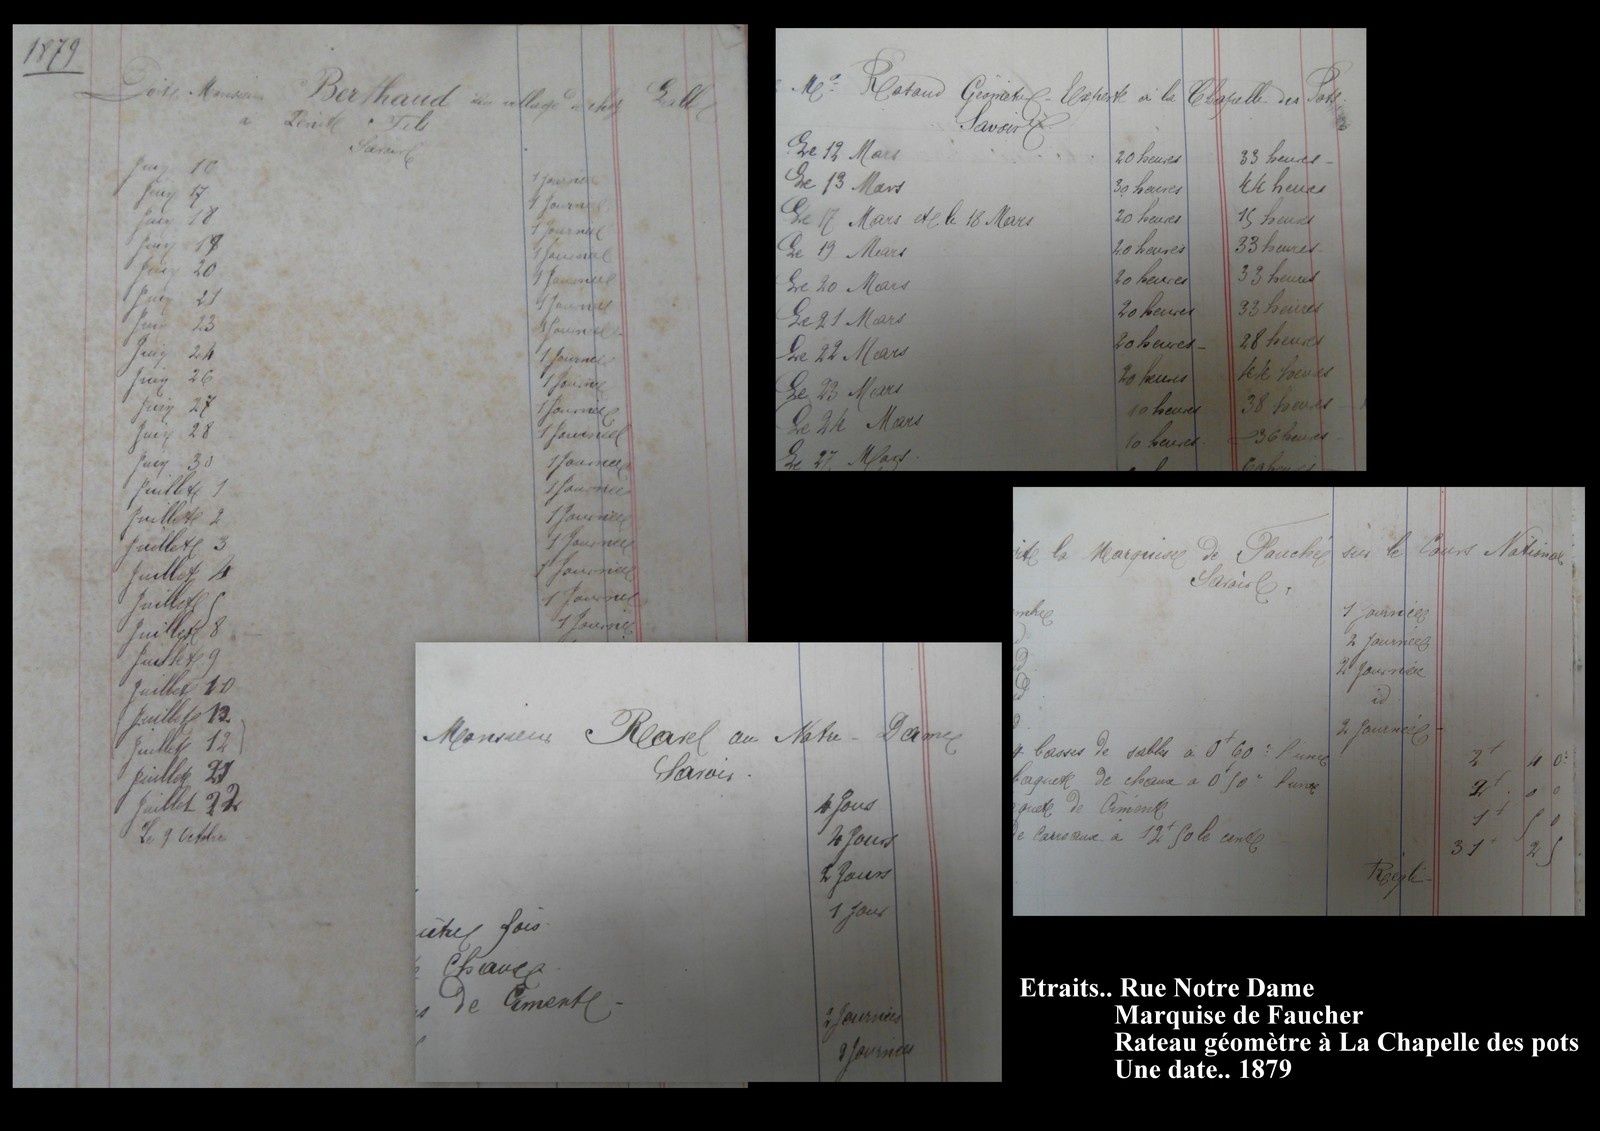 1879
Doit Monsieur Berthaud au village de chez Gallle
a Fils
Savoir
Juin 16 1 Journée
Juin 17 1 Journée
Juin 18 1 Journée
Juin 19 1 Journée
Juin 20 1 Journée
Juin 21 1 Journée
Juin 23 1 Journée
Juin 24 1 Journée
Juin 26 1 Journée
Juin 27 1 Journée
Juin 28 1 Journée
Juin 30 1 Journée
Juillet 1 1 Journée
Juillet 2 1 Journée
Juillet 3 1 Journée
Juillet 4 1 Journée
Juillet 5 1 Journée
Juillet 8 1 Journée
Juillet 9
Juillet 10
Juillet 12
Juillet 12
Juillet 21
Juillet 22
Le 9 Octobre
Mr Rataud Géomètre-Experte à la Chapelle-des Pots
Savoir
Le 12 Mars 20 heures 33 heures
Le 13 Mars 30 heures 44 heures
Le 17 Mars et le 18 Mars 20 heures 15 heures
Le 19 Mars 20 heures 33 heures
Le 20 Mars 20 heures 33 heures
Le 21 Mars 20 heures 33 heures
Le 22 Mars 20 heures 28 heures
Le 23 Mars 20 heures 44 heures
Le 24 Mars 10 heures 38 heures
Le 27 Mars 10 heures 36 heures
la Marquise de Fauché sur le Cours National
Savoir
1 Journée
2 Journées
2 Journée
id
2 Journées
basses de sables à 0f 60c l'une 2f 40c
baquets de chaux à 0f 50c l'une 2f 00
de Ciment 1f 50
de carreaux à 12f 50 le cent 31f 25
Réglé
Monsieur Ravel au Notre-Dame
Savoir
4 Jous
2 Jours
2 Jours
1 Jour
fois
Chaux
de Ciment
2 Journées
2 Journées
Etraits.. Rue Notre Dame
Marquise de Faucher
Rateau géomètre à La Chapelle des pots
Une date.. 1879